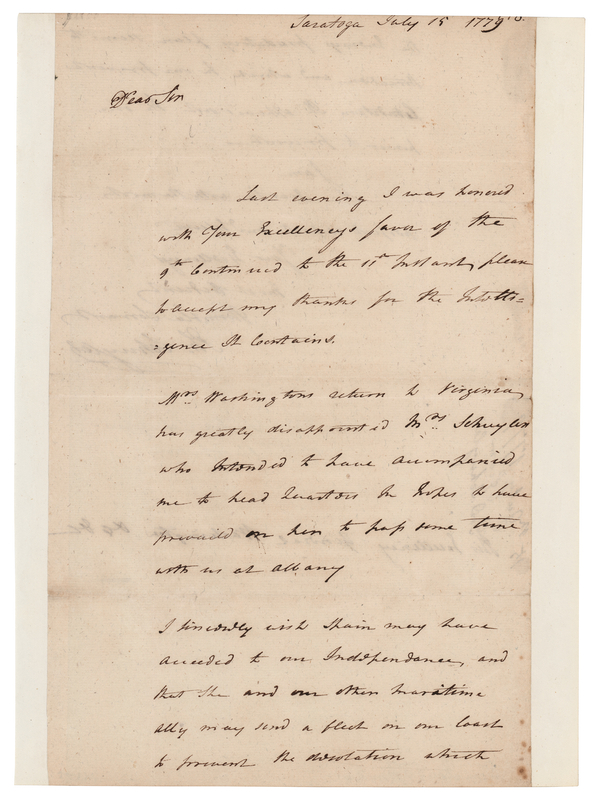 Saratoga July 15 1779
Dear Sir
Last evening I was honored
with Your Excellency's favor of the
9th Continued to the 11th Instant, please
to accept my thanks for the Intelli=
=gence It Contains.
Mrs. Washingtons return to Virginia
has greatly disappointed Mrs. Schuyler
who Intended to have accompanied
me to head Quarters In hopes to have
prevailed on her to pass some time
with us at Albany
I sincerely wish Spain may have
acceded to our Independance, and
that She and our other maratime
ally may send a fleet on our Coast
to prevent the desolation which